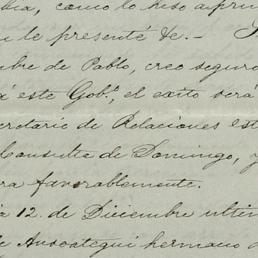 bia, como lo hiso a prin
le presenté &.-
bre de Pablo, creo seguro
este Gob.º, el exito será
cretario de Relaciones est
Consulta de Domingo, y
ra favorablemente.
12 de Diciembre ultim
Ansoategui hermano d